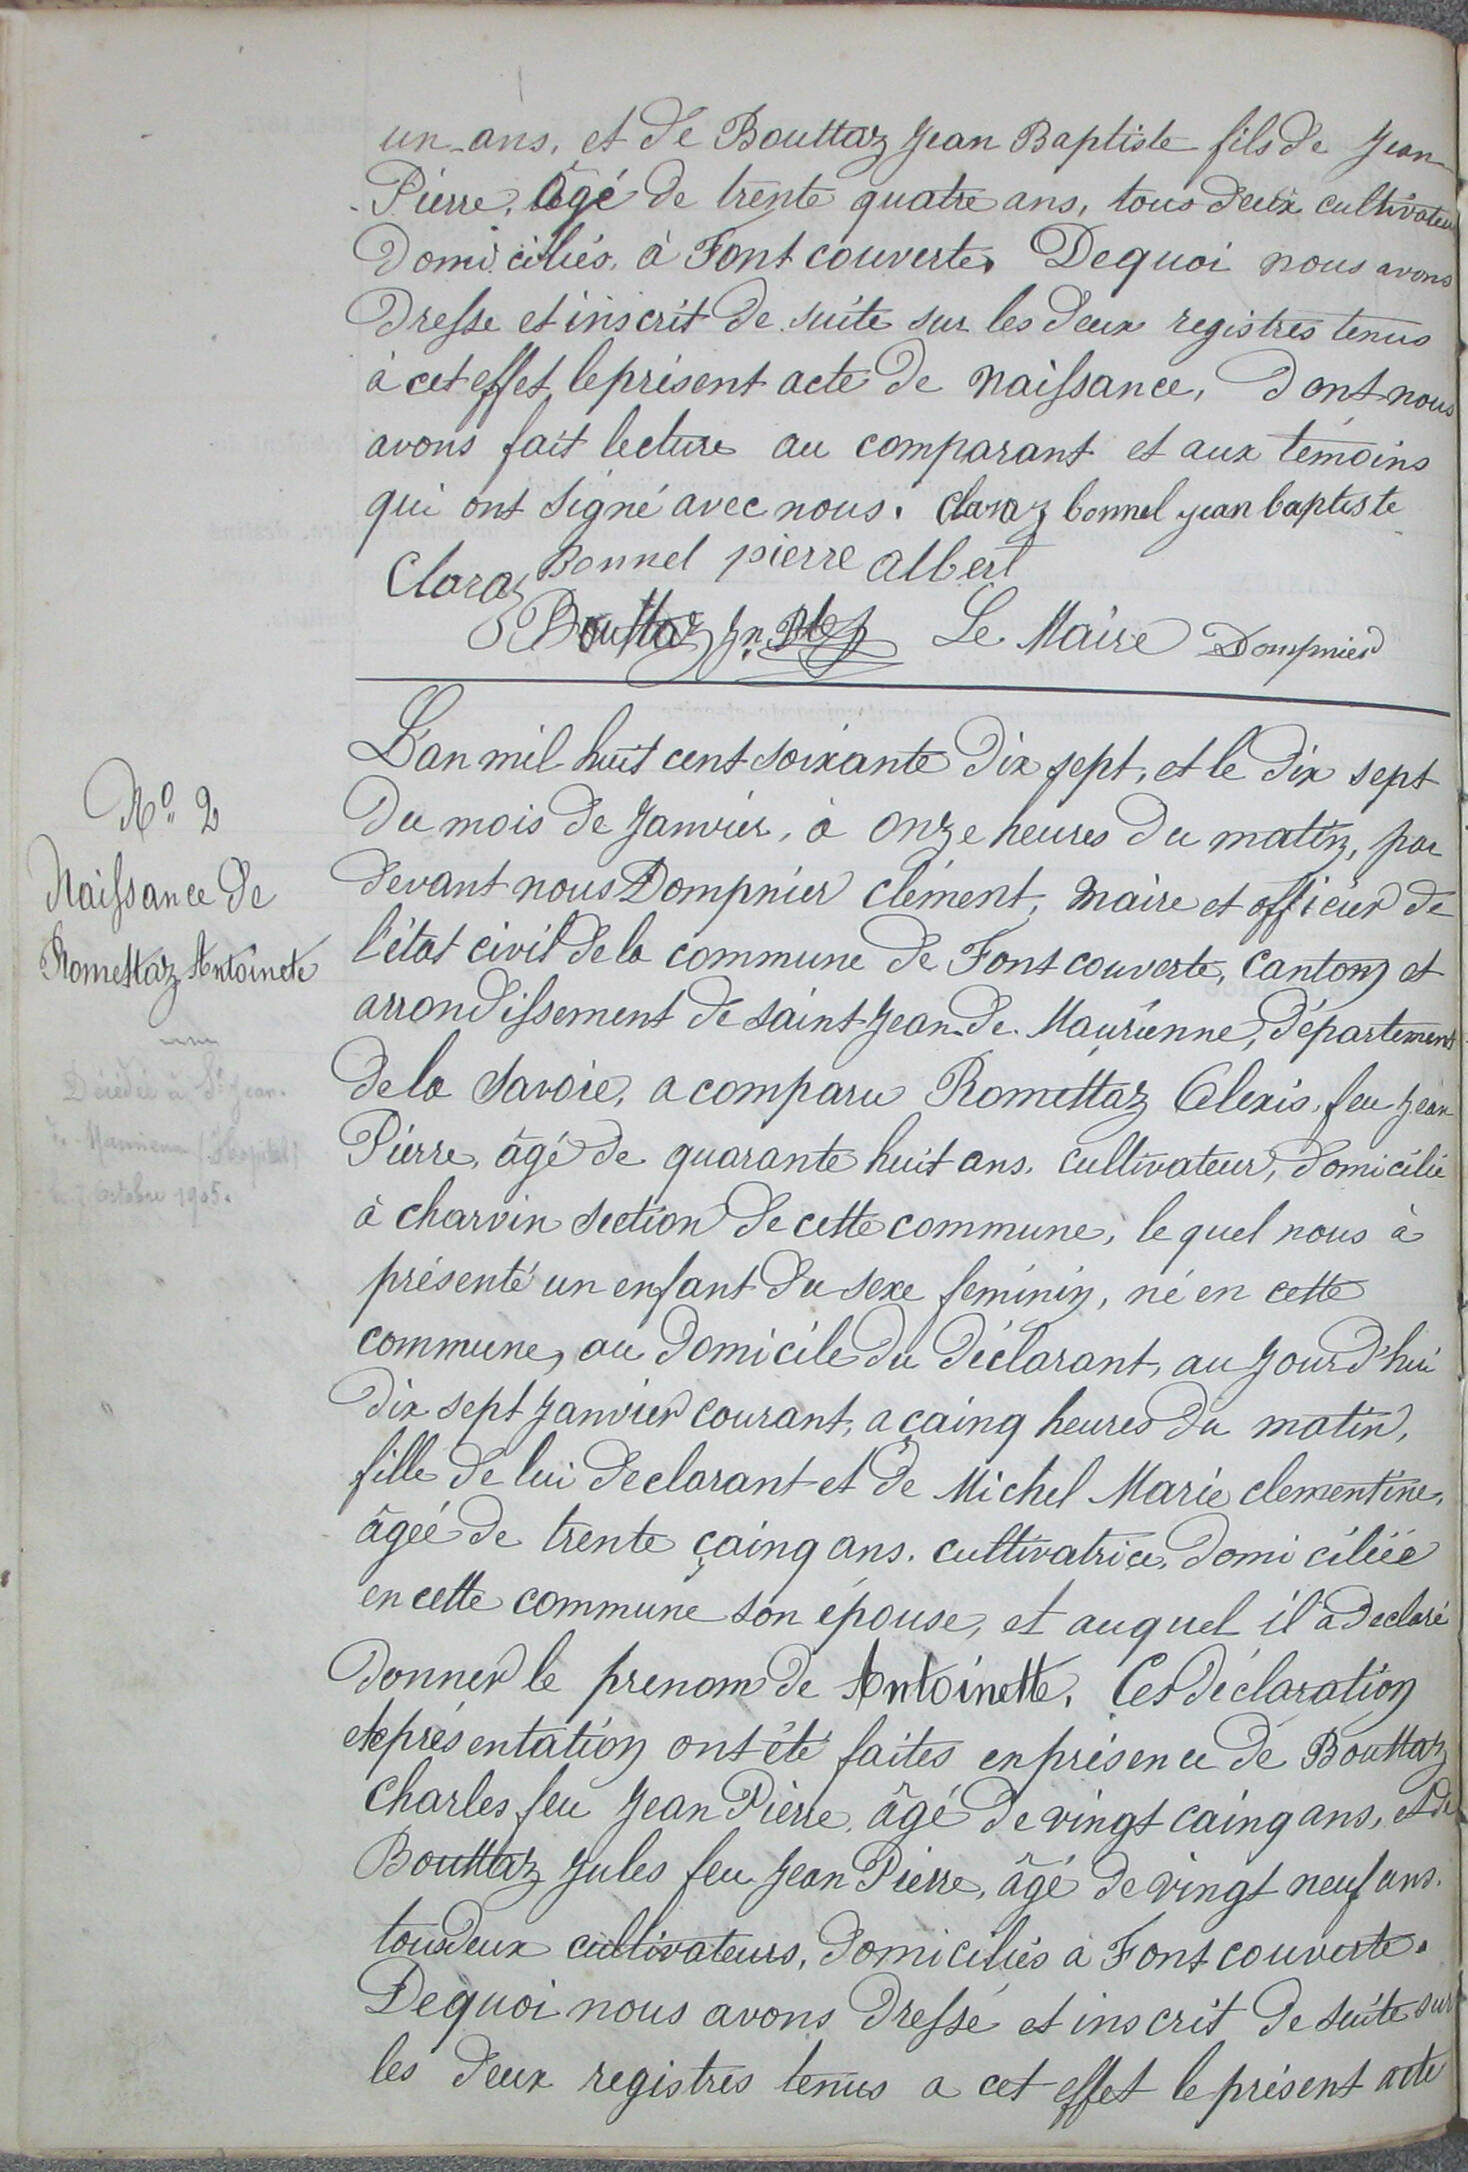 un ans, et de Bouttaz Jean Baptiste fils de Jean
Pierre, âgé de trente quatre ans, tous deux cultivateurs
domiciliés, à Fontcouverte. Dequoi nous avons
dresse et inscrit de suite sur les deux registres tenus
à cet effet, le présent acte de naissance, dont nous
avons fait lecture au comparant et aux témoins
qui ont signé avec nous. Claraz bonnel jean baptiste
Claraz Bonnel pierre albert
Bouttaz Jn. Bte Le Maire Dompnier
L'an mil huit cent soixante dix sept, et le dix sept
du mois de Janvier, à onze heures du matin, par
devant nous Dompnier Clément, maire et officier de
l'état civil de la commune de Fontcouverte, canton et
arrondissement de saint Jean de Maurienne, département
de la Savoie, a comparu Romettaz Alexis, feu Jean
Pierre, âgé de quarante huit ans, cultivateur, domicilié
à charvin section de cette commune, le quel nous à
présenté un enfant du sexe feminin, né en cette
commune, au domicile du déclarant, au jourd'hui
dix sept Janvier courant, a çainq heures du matin,
fille de lui declarant et de Michel Marie clementine,
âgéé de trente çainq ans, cultivatrice, domiciliéé
en cette commune son épouse, et auquel il a declaré
donner le prenom de Antoinette. Ces déclaration
et présentation ont été faites en présence de Bouttaz
Charles feu Jean Pierre, âgé de vingt cainq ans, et de
Bouttaz Jules feu Jean Pierre, âgé de vingt neuf ans.
tous deux cultivateurs, domiciliés a Fontcouverte.
Dequoi nous avons dressé et inscrit de suite sur
les deux registres tenus a cet effet le présent acte
No. 2
Naissance de
Romettaz Antoinete
Décédée à St Jean
de Maurienne (Hopital)
le 7 Octobre 1905.